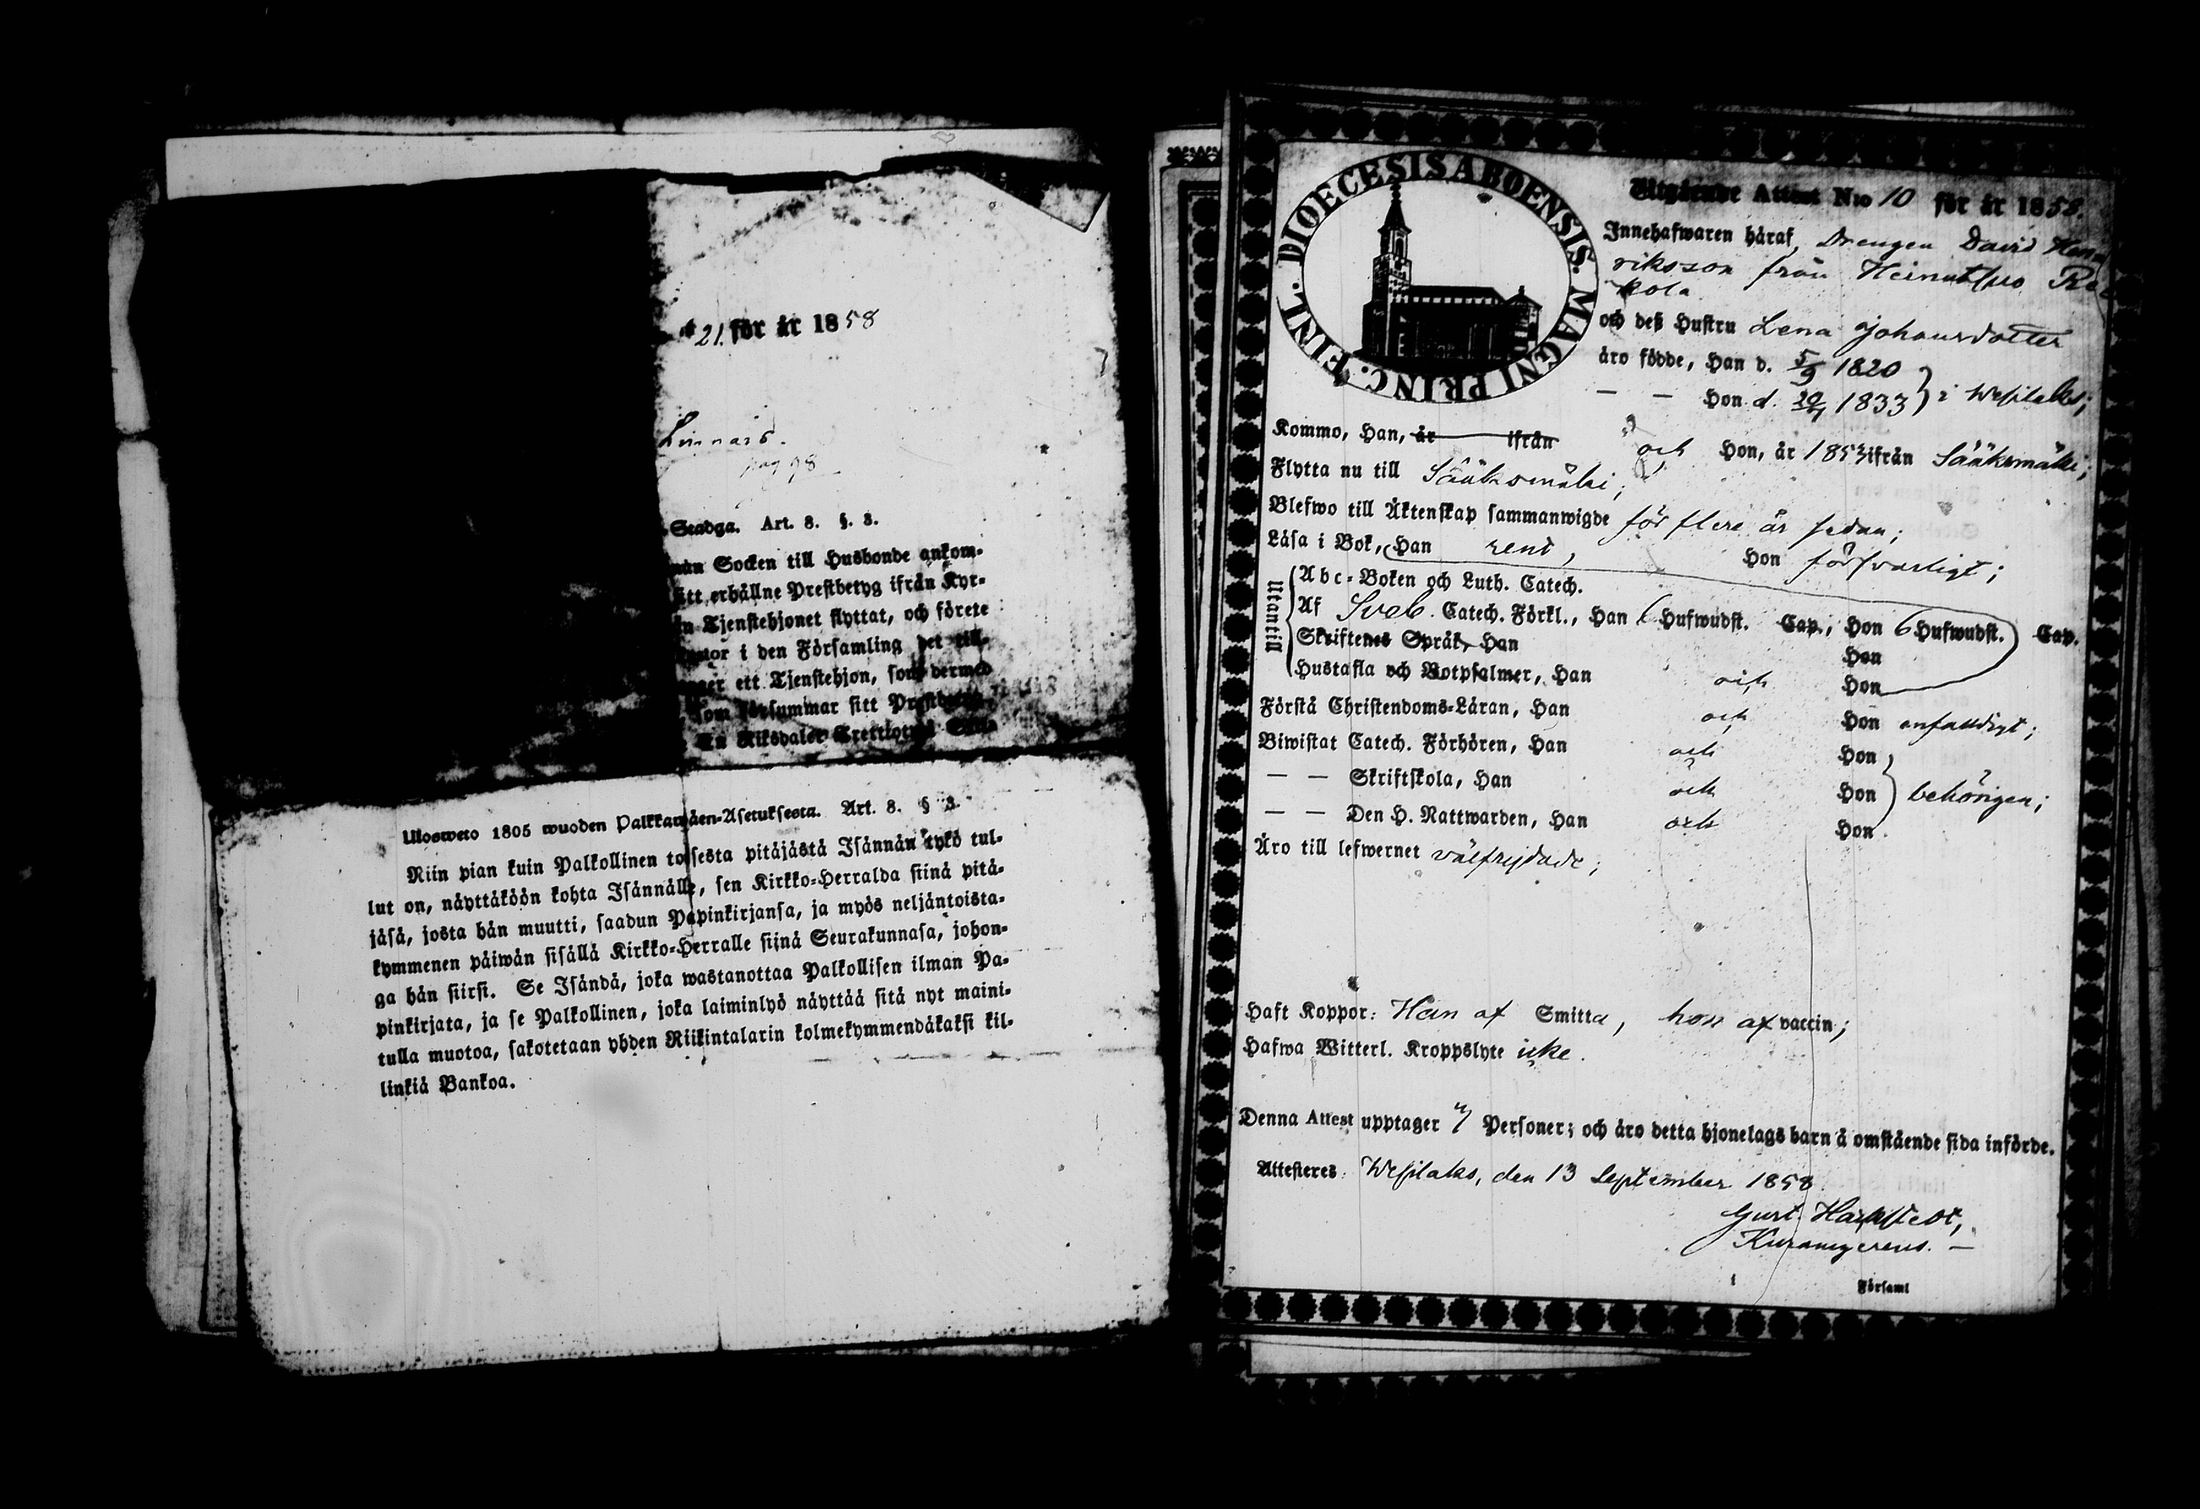 21. för år 1858
Linnais.
pag 98
Stadga. Art. 8. §. 3.
Socken till Husbonde ankom-
sitt erhållne Prestbetyg ifrån Kyr-
Tjenstehjonet flyttat, och förete
i den Församling det till-
ett Tjenstehjon, som dermed
som försummar sitt
En Riksdaler Trettiotwå
Ulosweto 1805 wuoden Palkkawäen-Asetuksesta. Art. 8. § 3.
Niin pian kuin Palkollinen toisesta pitäjästä Isännän tykö tul-
lut on, näyttäköön kohta Isännälle, sen Kirkko-Herralda siinä pitä-
jäsä, josta hän muutti, saadun Papinkirjansa, ja myös neljäntoista-
kymmenen päiwän sisällä Kirkko-Herralle siinä Seurakunnasa, johon-
ga hän siirsi. Se Isändä, joka wastanottaa Palkollisen ilman Pa-
pinkirjata, ja se Palkollinen, joka laiminlyö näyttää sitä nyt maini-
tulla muotoa, sakotetaan yhden Riikintalarin kolmekymmendäkaksi kil-
linkiä Bankoa.
DIOECESIS ABOENSIS. MAGNI PRINC. FINL.
Utgående Attest N:ro 10 för år 1858.
Innehafwaren häraf, Drengen David Hen-
riksson från
kola
och deß Hustru Lena Johansdotter
äro födde, Han d. 5/9 1820
— — Hon d. 1833 i Wesilaks;
Kommo, Han, år ifrån och Hon, år 1853 ifrån Sääksmäki;
Flytta nu till Sääksmäki;
Blefwo till Äktenskap sammanwigde för flere år sedan;
Läsa i Bok, Han rent, Hon försvarligt;
Utantill
Abc-Boken och Luth. Catech.
Af Sveb. Catech. Förkl., Han 6 Hufwudst. Cap., Hon 6 Hufwudst. Cap.
Skriftenes Språk, Han Hon
Hustafla och Botpsalmer, Han och Hon
Förstå Christendoms-Läran, Han och Hon enfaldigt;
Biwistat Catech. Förhören, Han och Hon
— — Skriftskola, Han och Hon behörigen;
— — Den H. Nattwarden, Han och Hon
Äro till lefwernet välfrejdade;
Haft Koppor: Han af Smitta, hon af vaccin;
Hafwa Witterl. Kroppslyte icke.
Denna Attest upptager Personer; och äro detta hjonelags barn å omstående sida införde.
Attesteres. Wesilaks, den 13 September 1858.
Församl